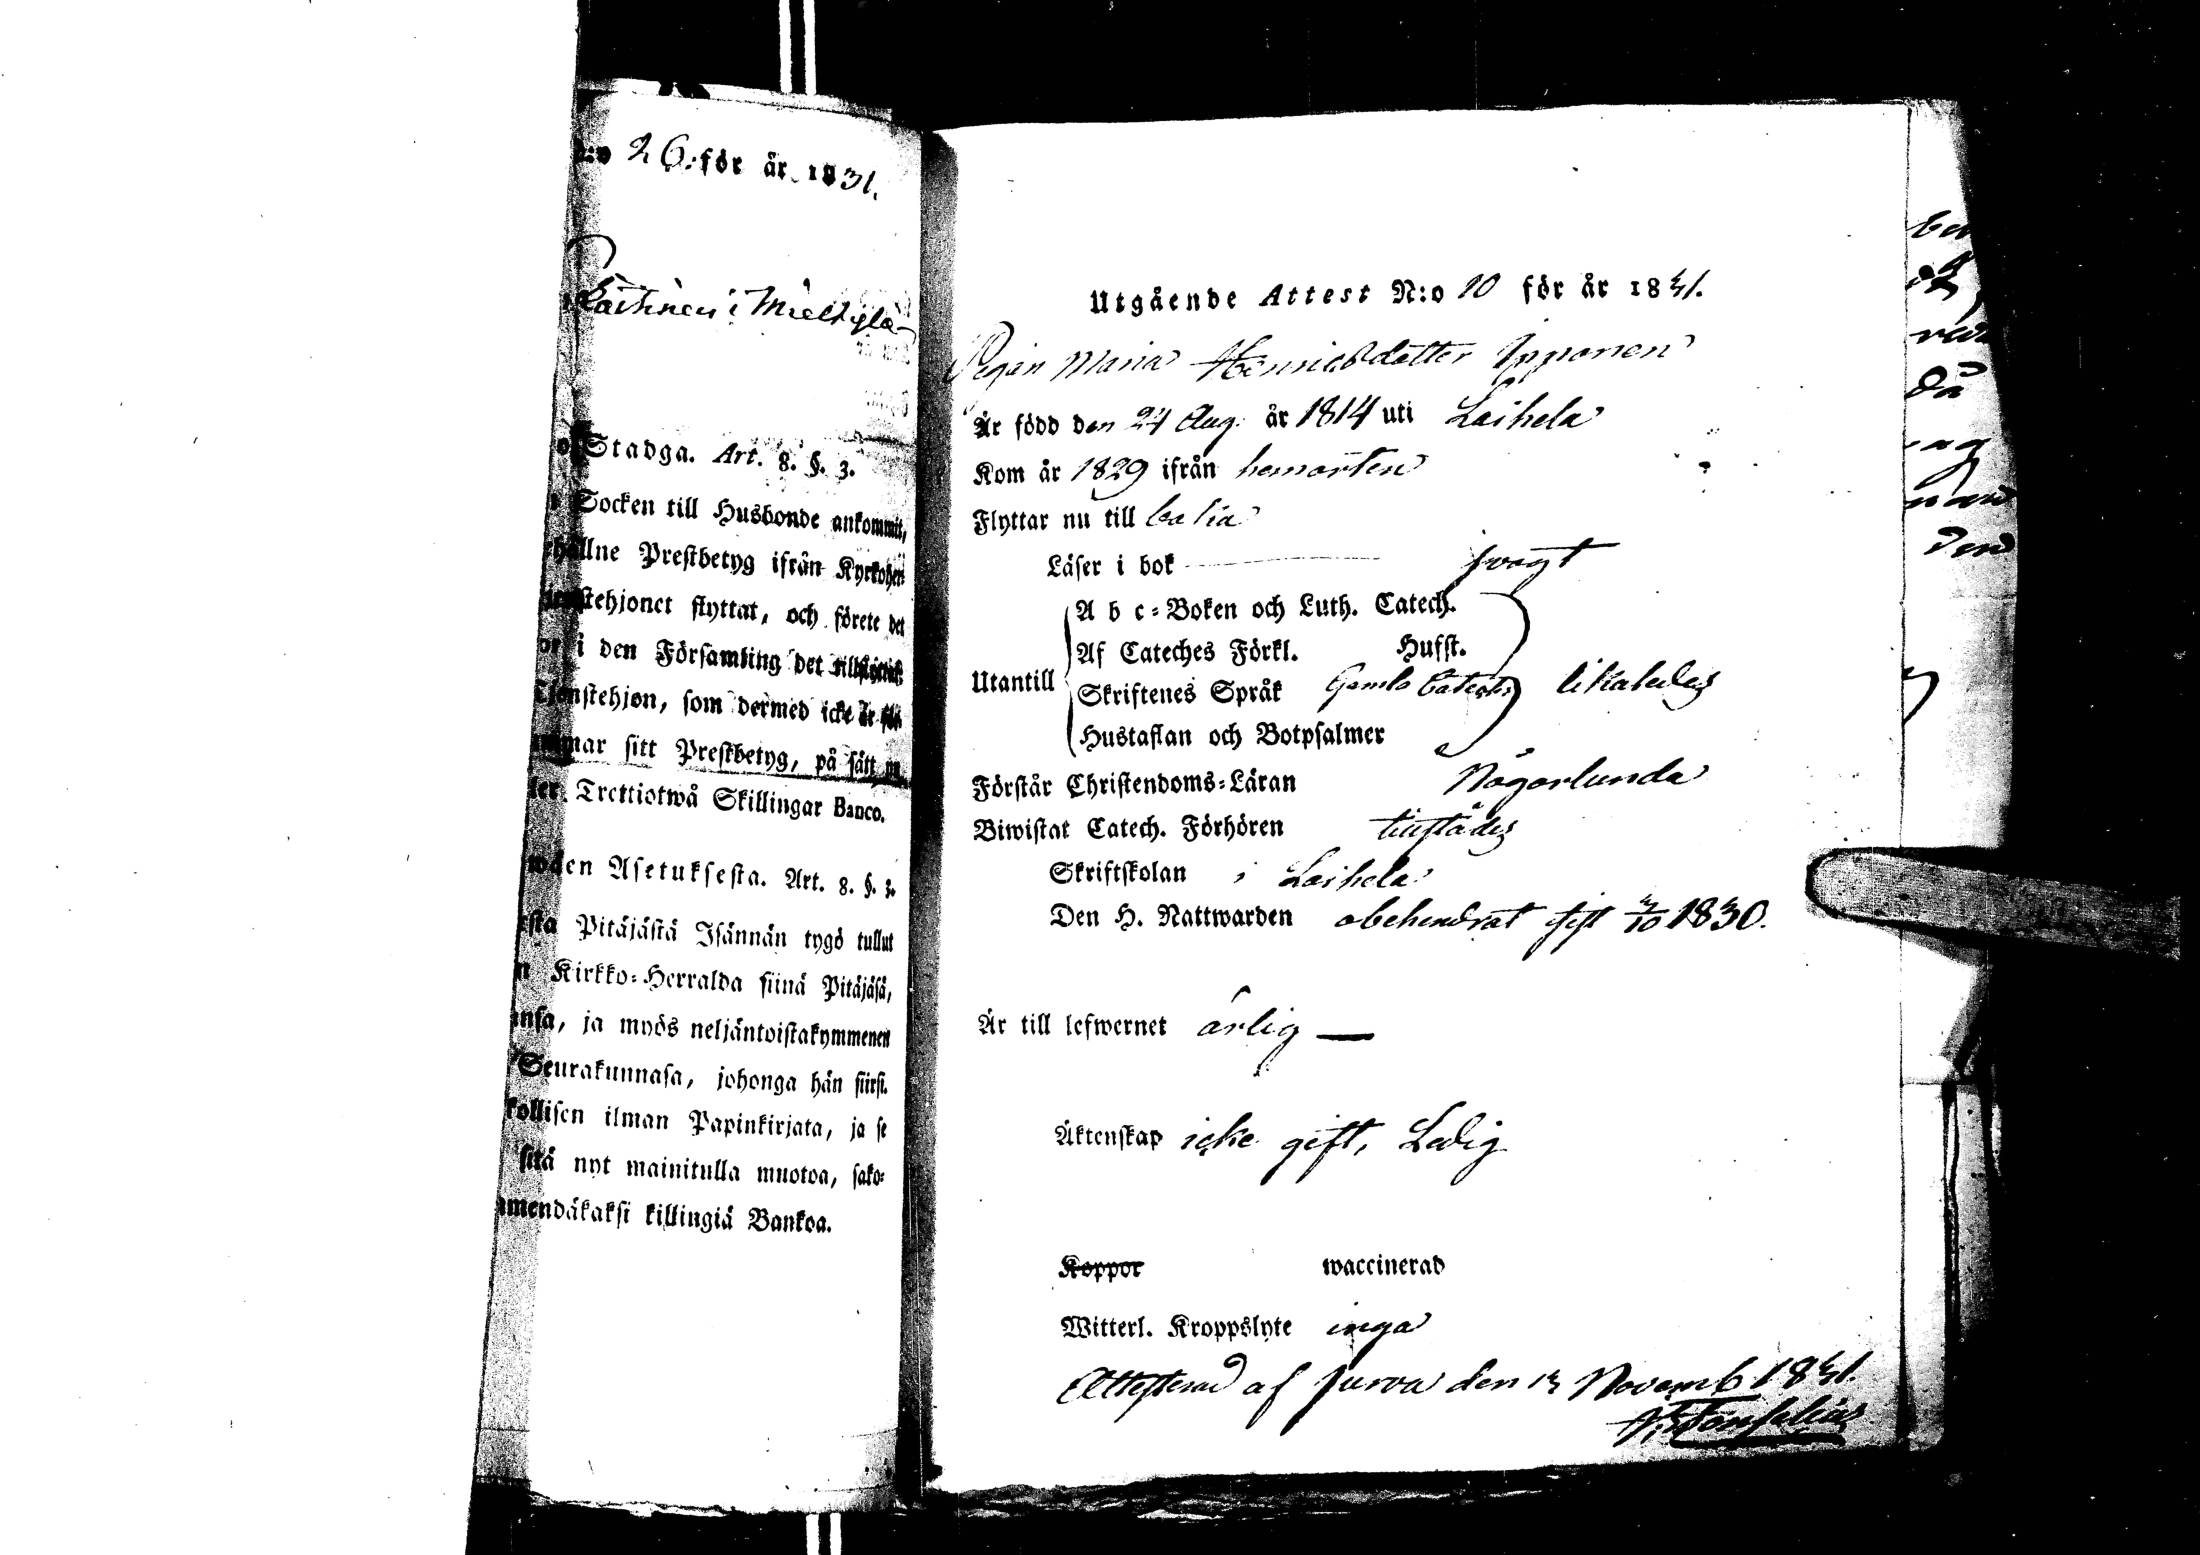 26. för år 1831.
i Mieltylä
Stadga. Art. 8. §. 3.
Socken till Husbonde ankommit,
hållne Prestbetyg ifrån Kyrkoher
stehjonet flyttat, och förete det
i den Församling det
Tjenstehjon, som dermed icke är
mar sitt Prestbetyg, på sätt nu
ler. Trettiotwå Skillingar Banco.
wäen Asetuksesta. Art. 8. §. 3.
sta Pitäjästä Isännän tygö tullut
n Kirkko-Herralda siinä Pitäjäsä,
ansa, ja myös neljäntoistakymmenen
Seurakunnasa, johonga hän siirt.
kollisen ilman Papinkirjata, ja se
sitä nyt mainitulla muotoa, sako-
mmendäkaksi killingiä Bankoa.
Utgående Attest N:o 10 för år 1831.
Pigan Maria Henricsdotter Ipponen
Är född den 24 Aug. år 1814 uti Laihela
Kom år 1829 ifrån hemorten
Flyttar nu till
Läser i bok svagt
A b c-Boken och Luth. Catech.
Af Cateches Förkl. Husst.
Utantill Skriftenes Språk Gamla Catech. likaledes
Hustaflan och Botpsalmer
Förstår Christendoms-Läran Någorlunda
Biwistat Catech. Förhören tillstädes
Skriftskolan i Laihela
Den H. Nattwarden obehindrat sist 3/10 1830.
Är till lefwernet ärlig —
Äktenskap icke gift, Ledig
Koppor waccinerad
Witterl. Kroppslyte inga
Attesterad af Jurva den 13 Novemb 1831.